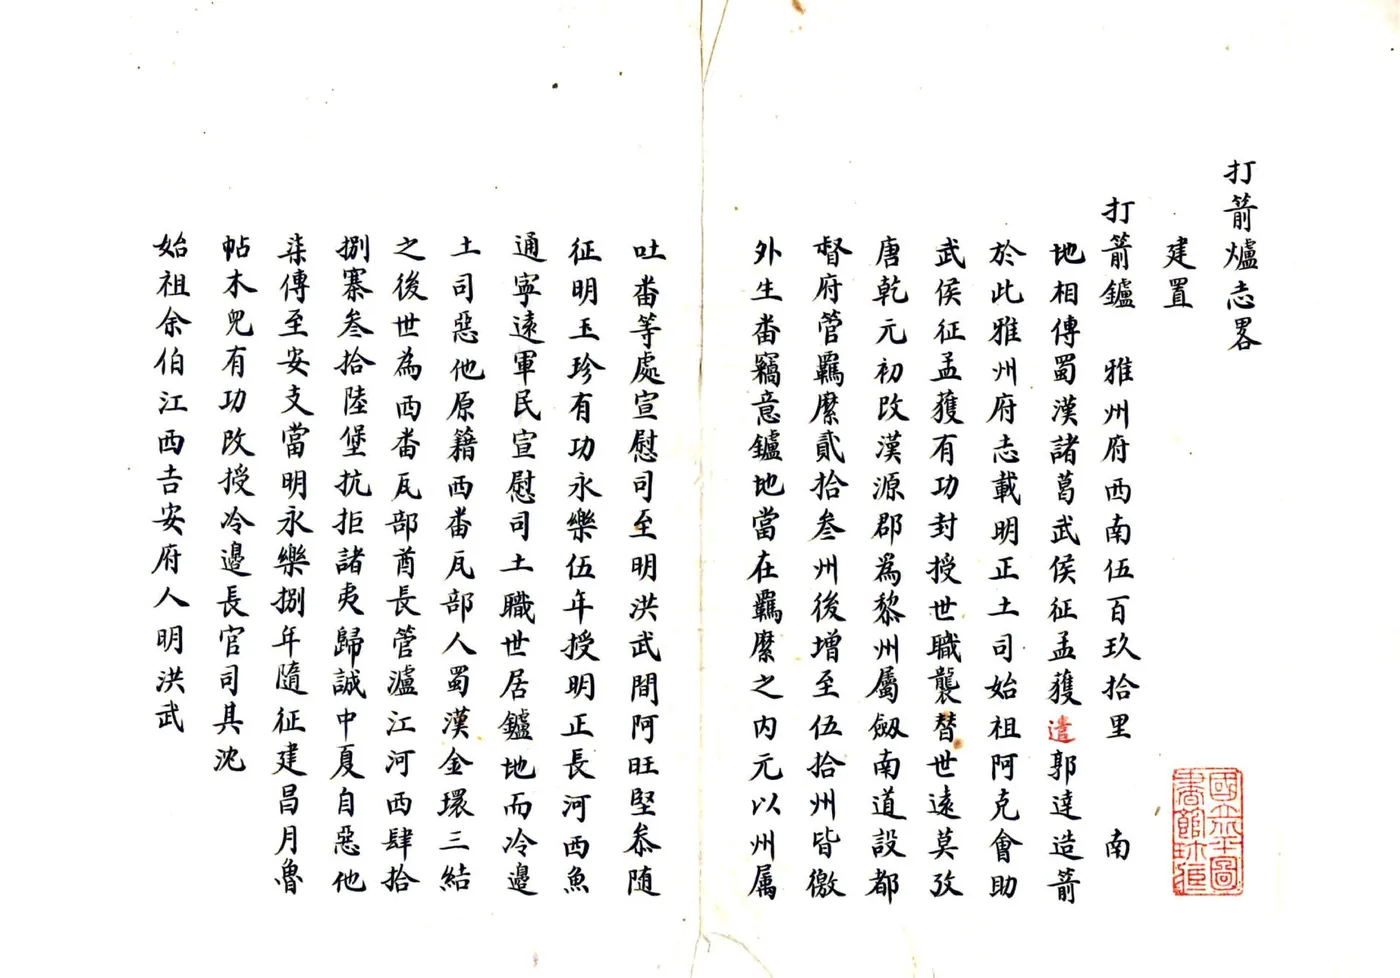 打箭爐志畧
建置
打箭鑪 雅州府西南伍百玖拾里 南
地相傳蜀漢諸葛武侯征孟獲遣郭達造箭
於此雅州府志載明正土司始祖阿克會助
武侯征孟獲有功封授世職襲替世遠莫攷
唐乾元初改漢源郡為黎州屬劔南道設都
督府管羈縻貳拾叁州後增至伍拾州皆徼
外生番竊意鑪地當在羈縻之内元以州属
吐番等處宣慰司至明洪武間阿旺堅叅随
征明玉珍有功永樂伍年授明正長河西魚
通寧遠軍民宣慰司土職世居鑪地而冷邊
土司惡他原籍西番瓦部人蜀漢金環三結
之後世為西番瓦部酋長管瀘江河西肆拾
捌寨叁拾陸堡抗拒諸夷歸誠中夏自惡他
柒傳至安支當明永樂捌年隨征建昌月魯
帖木兒有功改授冷邊長官司其沈
始祖余伯江西吉安府人明洪武